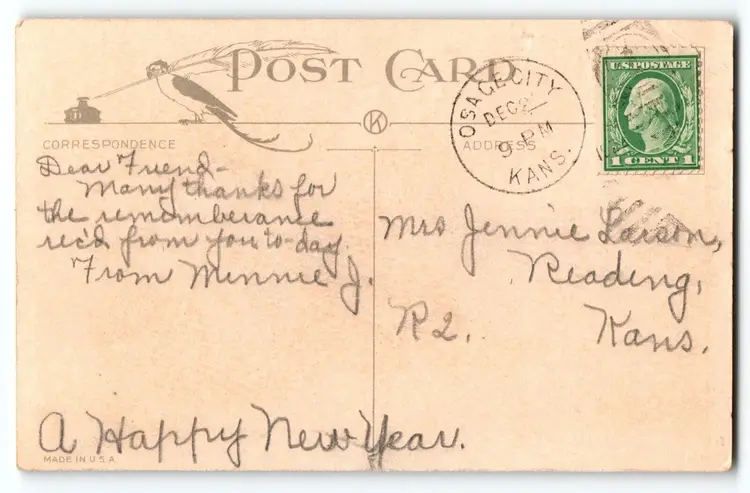 POST CARD
CORRESPONDENCE
ADDRESS
K
OSAGE CITY
DEC 2
9 PM
KANS.
U.S. POSTAGE
1 CENT 1
Dear Friend-
Many thanks for
the rememberance
rec'd from you to-day.
From Minnie J.
Mrs Jennie Larson,
Reading,
R2. Kans.
A Happy New Year.
MADE IN U.S.A.